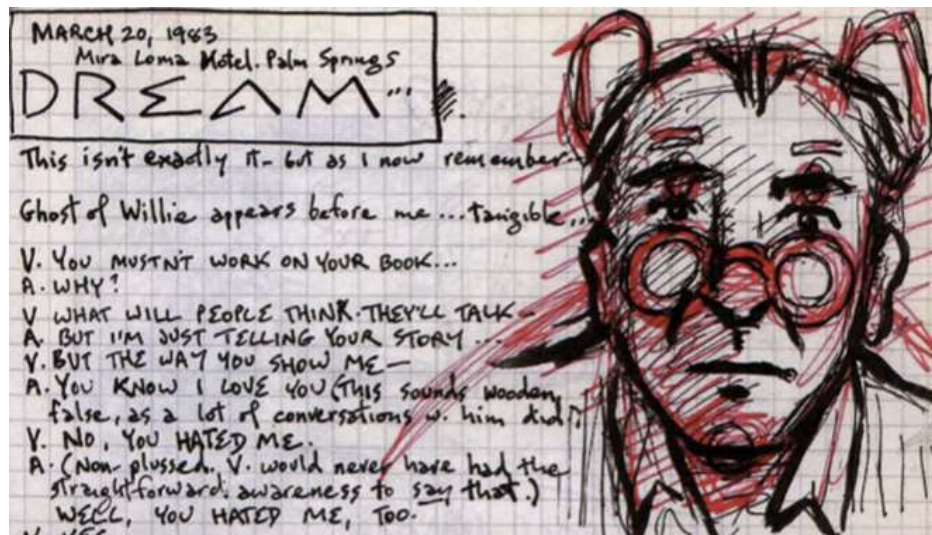 MARCH 20, 1983
Mira Loma Hotel. Palm Springs
DREAM...
This isn't exactly it - but as I now remember-
Ghost of Willie appears before me ... tangible...
V. YOU MUSTN'T WORK ON YOUR BOOK...
A. WHY?
V WHAT WILL PEOPLE THINK. THEY'LL TALK-
A. BUT I'M JUST TELLING YOUR STORY ...
V. BUT THE WAY YOU SHOW ME—
A. YOU KNOW I LOVE YOU (THIS sounds wooden,
false, as a lot of conversations w. him did.)
V. NO, YOU HATED ME.
A. (Non-plussed. V. would never have had the
straightforward awareness to say that.)
WELL, YOU HATED ME, TOO.
V. YES